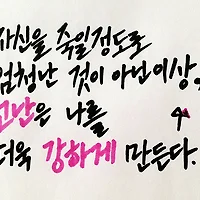 자신을 죽일정도로
엄청난 것이 아닌이상,
고난은 나를
더욱 강하게 만든다.